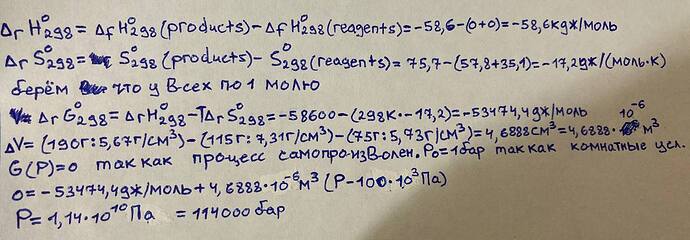 ΔrH⁰298 = ΔfH⁰298(products)-ΔfH⁰298(reagents)=-58,6-(0+0)=-58,6кдж/моль
ΔrS⁰298= S⁰298(products)-S⁰298(reagents)= 75,7-(57,8+35,1)=-17,2дж/(моль·К)
берём что у всех по 1 молю
ΔrG⁰298=ΔrH⁰298-TΔrS⁰298=-58600-(298К·-17,2)=-53474,4дж/моль
ΔV=(190г:5,67г/см³)-(115г:7,31г/см³)-(75г:5,73г/см³)=4,6888см³=4,6888·10⁻⁶ м³
G(P)=0 так как процесс самопроизволен. P₀=1бар так как комнатные усл.
0=-53474,4дж/моль+4,6888·10⁻⁶м³(P-100·10³Па)
P=1,14·10¹⁰Па =114000бар